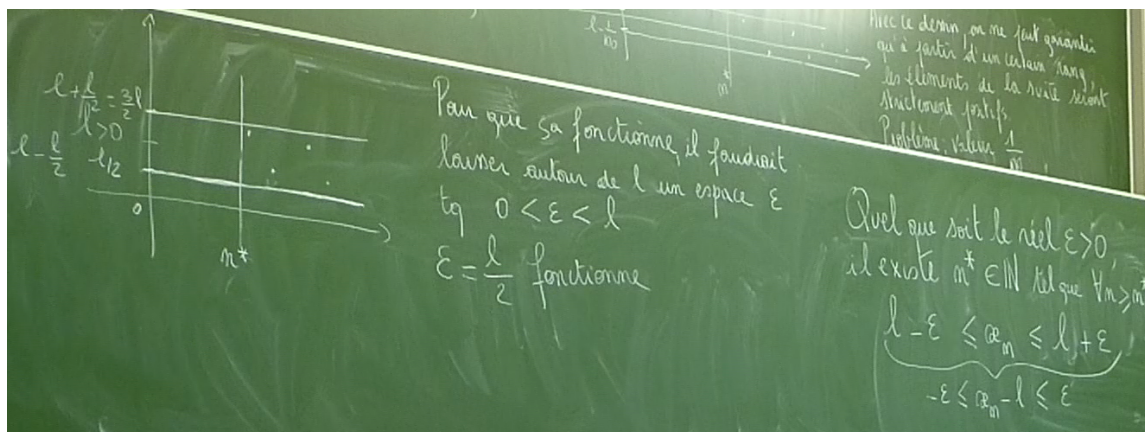 l + l/2 = 3/2 l
l > 0
l - l/2 l/2
0
n*
l - 1/m
n*
Avec ce dessin, on ne peut garantir
qu'à partir d'un certain rang
les éléments de la suite seront
strictement positifs.
Problème : valeur 1/m
Pour que ça fonctionne, il faudrait
laisser autour de l un espace ε
tq 0 < ε < l
ε = l/2 fonctionne
Quel que soit le réel ε > 0,
il existe n* ∈ ℕ tel que ∀n ≥ n*
l - ε ≤ x_n ≤ l + ε
-ε ≤ x_n - l ≤ ε